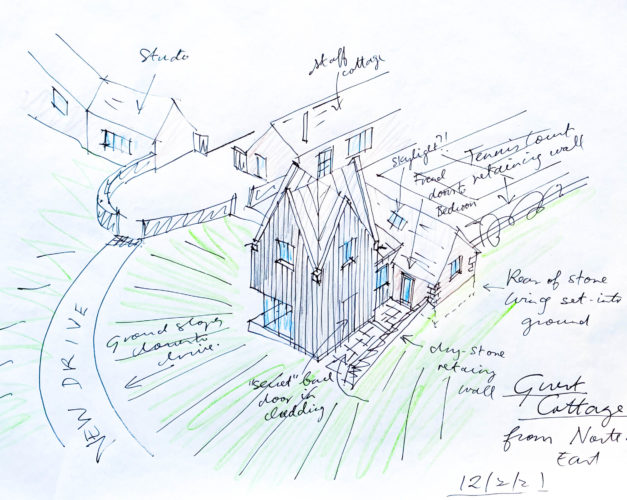 Studio
staff
cottage
Skylight?!
French
doors to
Bedroom
Tennis Court
retaining wall
Rear of stone
wing set-into
ground
NEW DRIVE
Ground slopes
down to
drive.
"secret" back
door in
cladding
dry-stone
retaing
wall
Guest
Cottage
from North-
East
12/2/21